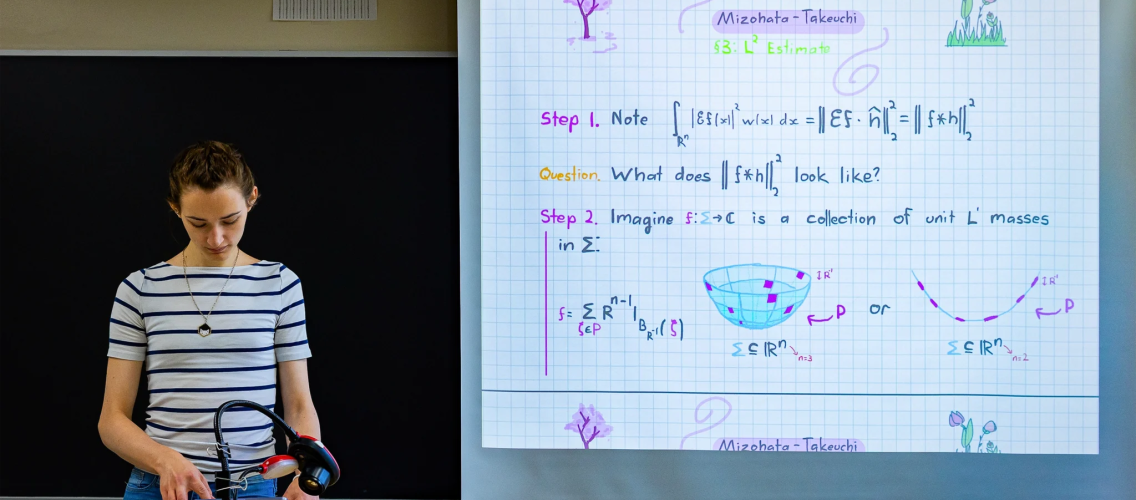 Mizohata - Takeuchi
§3: L² Estimate
Step 1. Note ∫_{ℝⁿ} |Ef(x)|² w(x) dx = ‖Ef · ĥ‖₂² = ‖f*h‖₂²
Question. What does ‖f*h‖₂² look like?
Step 2. Imagine f: Σ → ℂ is a collection of unit L¹ masses
in Σ:
f = Σ_{ξ∈P} R^{n-1} 1_{B_{R⁻¹}(ξ)}
↕ R⁻¹
P
Σ ⊆ ℝⁿ ↘ n=3
or
↕ R⁻¹
P
Σ ⊆ ℝⁿ ↘ n=2
Mizohata - Takeuchi